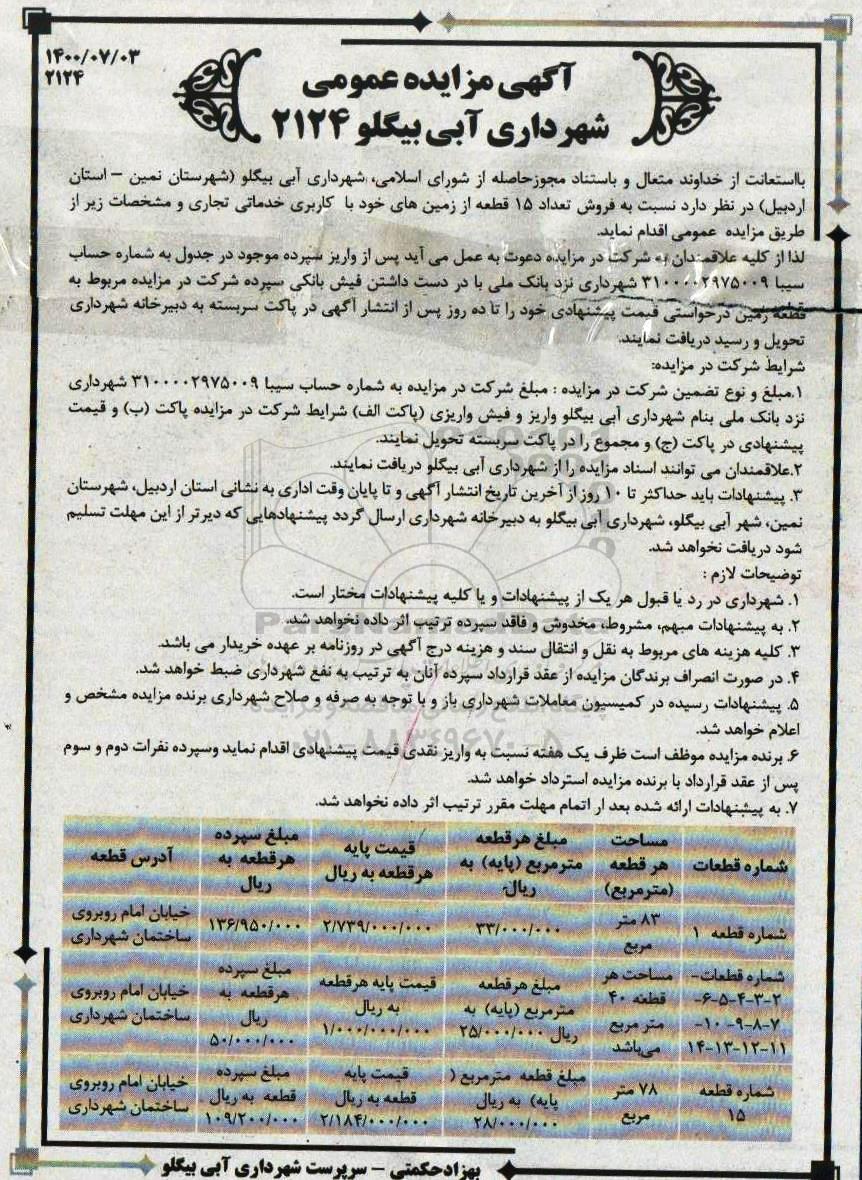 ۱۴۰۰/۰۷/۰۳
۲۱۲۴
آگهی مزایده عمومی
شهرداری آبی بیگلو ۲۱۲۴
بااستعانت از خداوند متعال و باستناد مجوزحاصله از شورای اسلامی، شهرداری آبی بیگلو (شهرستان نمین – استان
اردبیل) در نظر دارد نسبت به فروش تعداد ۱۵ قطعه از زمین های خود با کاربری خدماتی تجاری و مشخصات زیر از
طریق مزایده عمومی اقدام نماید.
لذا از کلیه علاقمندان به شرکت در مزایده دعوت به عمل می آید پس از واریز سپرده موجود در جدول به شماره حساب
سیبا ۳۱۰۰۰۰۲۹۷۵۰۰۹ شهرداری نزد بانک ملی با در دست داشتن فیش بانکی سپرده شرکت در مزایده مربوط به
قطعه زمین درخواستی قیمت پیشنهادی خود را تا ده روز پس از انتشار آگهی در پاکت سربسته به دبیرخانه شهرداری
تحویل و رسید دریافت نمایند.
شرایط شرکت در مزایده:
۱.مبلغ و نوع تضمین شرکت در مزایده : مبلغ شرکت در مزایده به شماره حساب سیبا ۳۱۰۰۰۰۲۹۷۵۰۰۹ شهرداری
نزد بانک ملی بنام شهرداری آبی بیگلو واریز و فیش واریزی (پاکت الف) شرایط شرکت در مزایده پاکت (ب) و قیمت
پیشنهادی در پاکت (ج) و مجموع را در پاکت سربسته تحویل نمایند.
۲.علاقمندان می توانند اسناد مزایده را از شهرداری آبی بیگلو دریافت نمایند.
۳. پیشنهادات باید حداکثر تا ۱۰ روز از آخرین تاریخ انتشار آگهی و تا پایان وقت اداری به نشانی استان اردبیل، شهرستان
نمین، شهر آبی بیگلو، شهرداری آبی بیگلو به دبیرخانه شهرداری ارسال گردد پیشنهادهایی که دیرتر از این مهلت تسلیم
شود دریافت نخواهد شد.
توضیحات لازم :
۱. شهرداری در رد یا قبول هر یک از پیشنهادات و یا کلیه پیشنهادات مختار است.
۲. به پیشنهادات مبهم، مشروط، مخدوش و فاقد سپرده ترتیب اثر داده نخواهد شد.
۳. کلیه هزینه های مربوط به نقل و انتقال سند و هزینه درج آگهی در روزنامه بر عهده خریدار می باشد.
۴. در صورت انصراف برندگان مزایده از عقد قرارداد سپرده آنان به ترتیب به نفع شهرداری ضبط خواهد شد.
۵. پیشنهادات رسیده در کمیسیون معاملات شهرداری باز و با توجه به صرفه و صلاح شهرداری برنده مزایده مشخص و
اعلام خواهد شد.
۶. برنده مزایده موظف است ظرف یک هفته نسبت به واریز نقدی قیمت پیشنهادی اقدام نماید وسپرده نفرات دوم و سوم
پس از عقد قرارداد با برنده مزایده استرداد خواهد شد.
۷. به پیشنهادات ارائه شده بعد از اتمام مهلت مقرر ترتیب اثر داده نخواهد شد.
شماره قطعات مساحت هر قطعه (مترمربع) مبلغ هرقطعه مترمربع (پایه) به ریال قیمت پایه هرقطعه به ریال مبلغ سپرده هرقطعه به ریال آدرس قطعه
شماره قطعه ۱ ۸۳ متر مربع ۳۳/۰۰۰/۰۰۰ ۲/۷۳۹/۰۰۰/۰۰۰ ۱۳۶/۹۵۰/۰۰۰ خیابان امام روبروی ساختمان شهرداری
شماره قطعات- ۲-۳-۴-۵-۶- ۷-۸-۹-۱۰- ۱۱-۱۲-۱۳-۱۴ مساحت هر قطعه ۴۰ متر مربع می‌باشد مبلغ هرقطعه مترمربع (پایه) به ریال ۲۵/۰۰۰/۰۰۰ قیمت پایه هرقطعه به ریال ۱/۰۰۰/۰۰۰/۰۰۰ مبلغ سپرده هرقطعه به ریال ۵۰/۰۰۰/۰۰۰ خیابان امام روبروی ساختمان شهرداری
شماره قطعه ۱۵ ۷۸ متر مربع مبلغ قطعه مترمربع (پایه) به ریال ۲۸/۰۰۰/۰۰۰ قیمت پایه قطعه به ریال ۲/۱۸۴/۰۰۰/۰۰۰ مبلغ سپرده قطعه به ریال ۱۰۹/۲۰۰/۰۰۰ خیابان امام روبروی ساختمان شهرداری
بهزادحکمتی – سرپرست شهرداری آبی بیگلو
ParsNamadData
۰۲۱-۸۸۳۴۹۶۷۰-۵